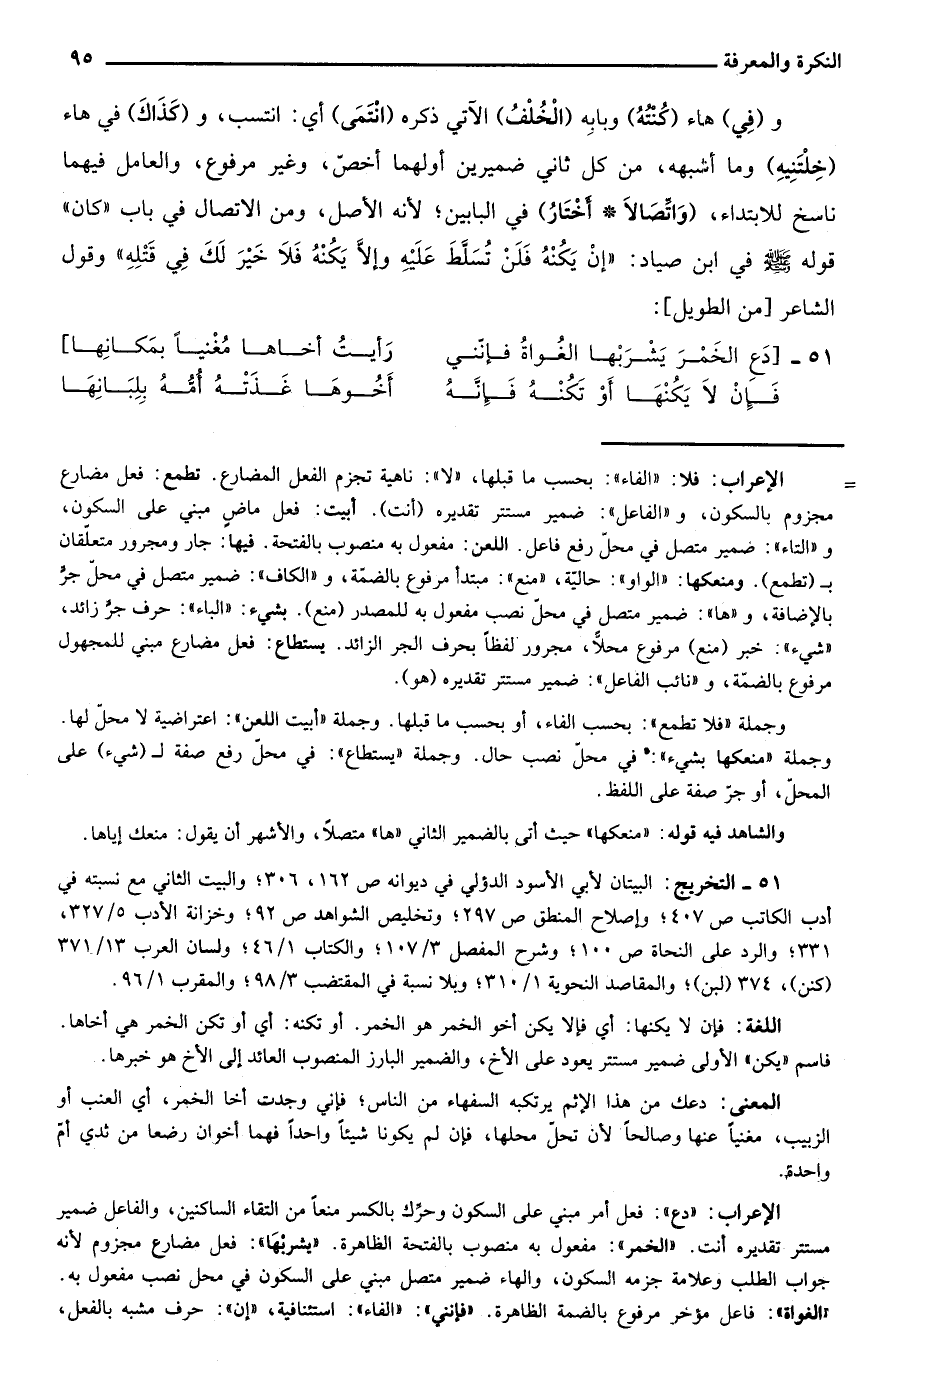 النكرة والمعرفة ٩٥
و (فِي) هاء (كُنْتُهُ) وبابِه (الْخُلْفُ) الآتي ذكره (انْتَمَى) أي: انتسب، و (كَذَاكَ) في هاء
(خِلْتَنِيهِ) وما أشبهه، من كل ثاني ضميرين أولهما أخصّ، وغير مرفوع، والعامل فيهما
ناسخ للابتداء، (وَاتِّصَالاَ * أَخْتَارُ) في البابين؛ لأنه الأصل، ومن الاتصال في باب «كان»
قوله ﷺ في ابن صياد: «إنْ يَكُنْهُ فَلَنْ تُسَلَّطَ عَلَيْهِ وإلاَّ يَكُنْهُ فَلَا خَيْرَ لَكَ فِي قَتْلِهِ» وقول
الشاعر [من الطويل]:
٥١ ـ [دَعِ الخَمْرَ يَشْرَبْها الغُواةُ فإنّني رَأيتُ أخاها مُغْنياً بمَكانِها]
فَإِنْ لاَ يَكُنْهَا أَوْ تَكُنْهُ فَإِنَّهُ أَخُوهَا غَذَتْهُ أُمُّهُ بِلِبَانِهَا
= الإعراب: فلا: «الفاء»: بحسب ما قبلها، «لا»: ناهية تجزم الفعل المضارع. تطمع: فعل مضارع
مجزوم بالسكون، و «الفاعل»: ضمير مستتر تقديره (أنت). أبيت: فعل ماضٍ مبني على السكون،
و «التاء»: ضمير متصل في محلّ رفع فاعل. اللعن: مفعول به منصوب بالفتحة. فيها: جار ومجرور متعلّقان
بـ (تطمع). ومنعكها: «الواو»: حاليّة، «منع»: مبتدأ مرفوع بالضمّة، و «الكاف»: ضمير متصل في محلّ جرُّ
بالإضافة، و «ها»: ضمير متصل في محلّ نصب مفعول به للمصدر (منع). بشيء: «الباء»: حرف جرُّ زائد،
«شيء»: خبر (منع) مرفوع محلاًّ، مجرور لفظاً بحرف الجر الزائد. يستطاع: فعل مضارع مبني للمجهول
مرفوع بالضمّة، و «نائب الفاعل»: ضمير مستتر تقديره (هو).
وجملة «فلا تطمع»: بحسب الفاء، أو بحسب ما قبلها. وجملة «أبيت اللعن»: اعتراضية لا محلّ لها.
وجملة «منعكها بشيء»: في محلّ نصب حال. وجملة «يستطاع»: في محلّ رفع صفة لـ (شيء) على
المحلّ، أو جرّ صفة على اللفظ.
والشاهد فيه قوله: «منعكها» حيث أتى بالضمير الثاني «ها» متصلاً، والأشهر أن يقول: منعك إياها.
٥١ ـ التخريج: البيتان لأبي الأسود الدؤلي في ديوانه ص ١٦٢، ٣٠٦؛ والبيت الثاني مع نسبته في
أدب الكاتب ص ٤٠٧؛ وإصلاح المنطق ص ٢٩٧؛ وتخليص الشواهد ص ٩٢؛ وخزانة الأدب ٣٢٧/٥،
٣٣١؛ والرد على النحاة ص ١٠٠؛ وشرح المفصل ١٠٧/٣؛ والكتاب ٤٦/١؛ ولسان العرب ٣٧١/١٣
(كنن)، ٣٧٤ (لبن)؛ والمقاصد النحوية ٣١٠/١؛ وبلا نسبة في المقتضب ٩٨/٣؛ والمقرب ٩٦/١.
اللغة: فإن لا يكنها: أي فإلا يكن أخو الخمر هو الخمر. أو تكنه: أي أو تكن الخمر هي أخاها.
فاسم «يكن» الأولى ضمير مستتر يعود على الأخ، والضمير البارز المنصوب العائد إلى الأخ هو خبرها.
المعنى: دعك من هذا الإثم يرتكبه السفهاء من الناس؛ فإني وجدت أخا الخمر، أي العنب أو
الزبيب، مغنياً عنها وصالحاً لأن تحلّ محلها، فإن لم يكونا شيئاً واحداً فهما أخوان رضعا من ثدي أمّ
واحدة.
الإعراب: «دع»: فعل أمر مبني على السكون وحرِّك بالكسر منعاً من التقاء الساكنين، والفاعل ضمير
مستتر تقديره أنت. «الخمر»: مفعول به منصوب بالفتحة الظاهرة. «يشربْها»: فعل مضارع مجزوم لأنه
جواب الطلب وعلامة جزمه السكون، والهاء ضمير متصل مبني على السكون في محل نصب مفعول به.
«الغواة»: فاعل مؤخر مرفوع بالضمة الظاهرة. «فإنني»: «الفاء»: استئنافية، «إن»: حرف مشبه بالفعل،